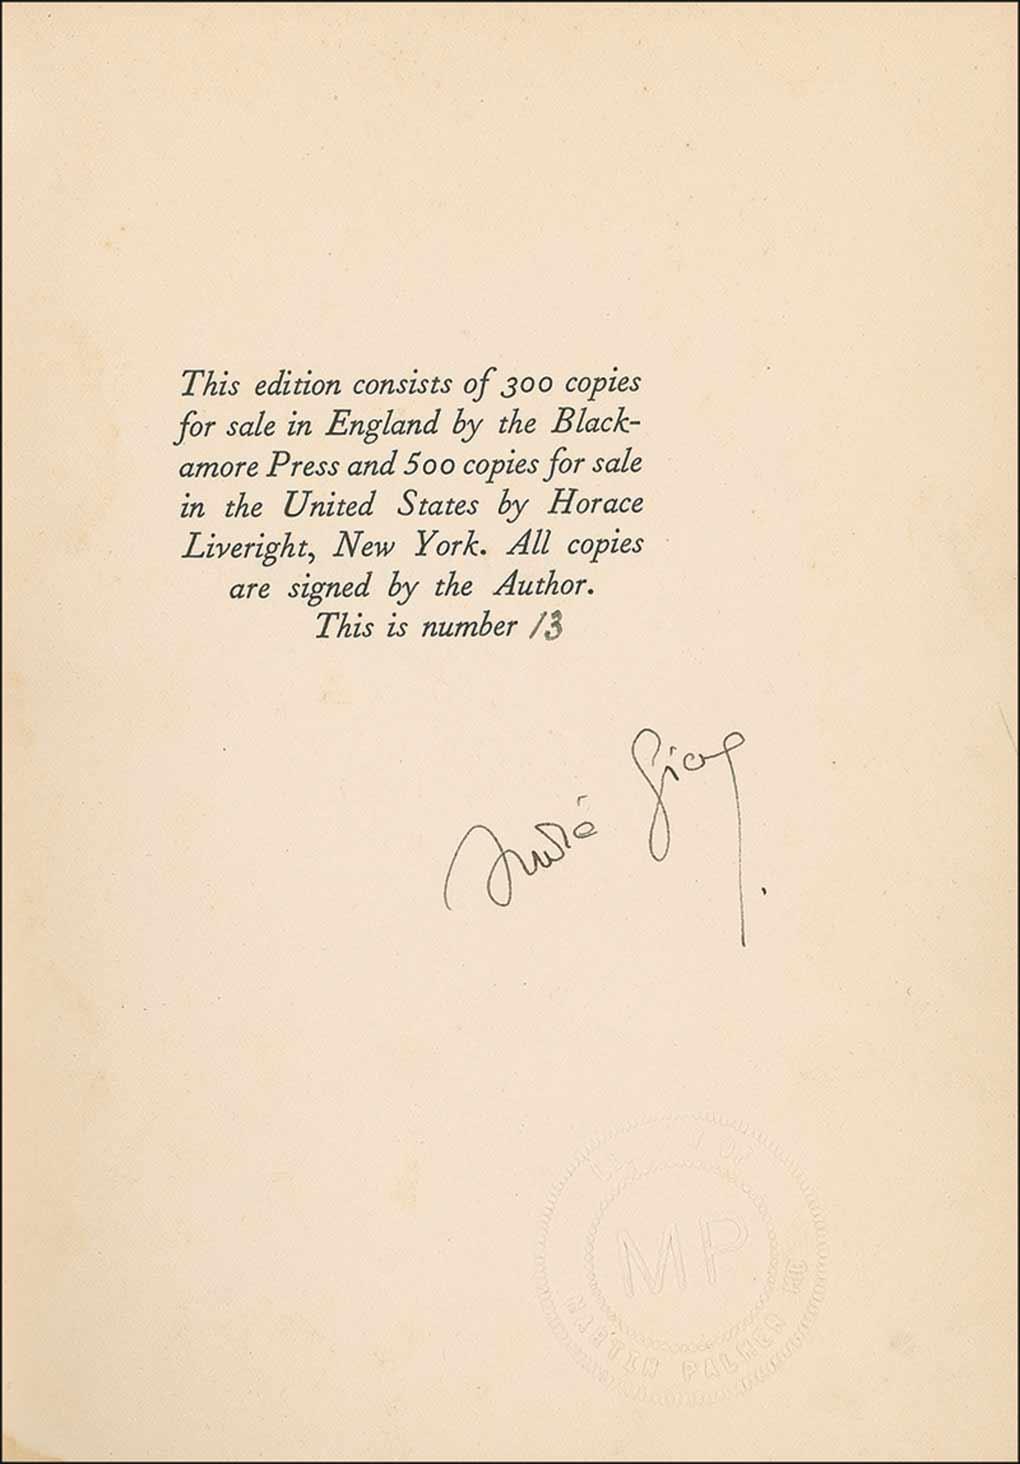 This edition consists of 300 copies
for sale in England by the Black-
amore Press and 500 copies for sale
in the United States by Horace
Liveright, New York. All copies
are signed by the Author.
This is number 13
André
MP
MARTIN PALMER